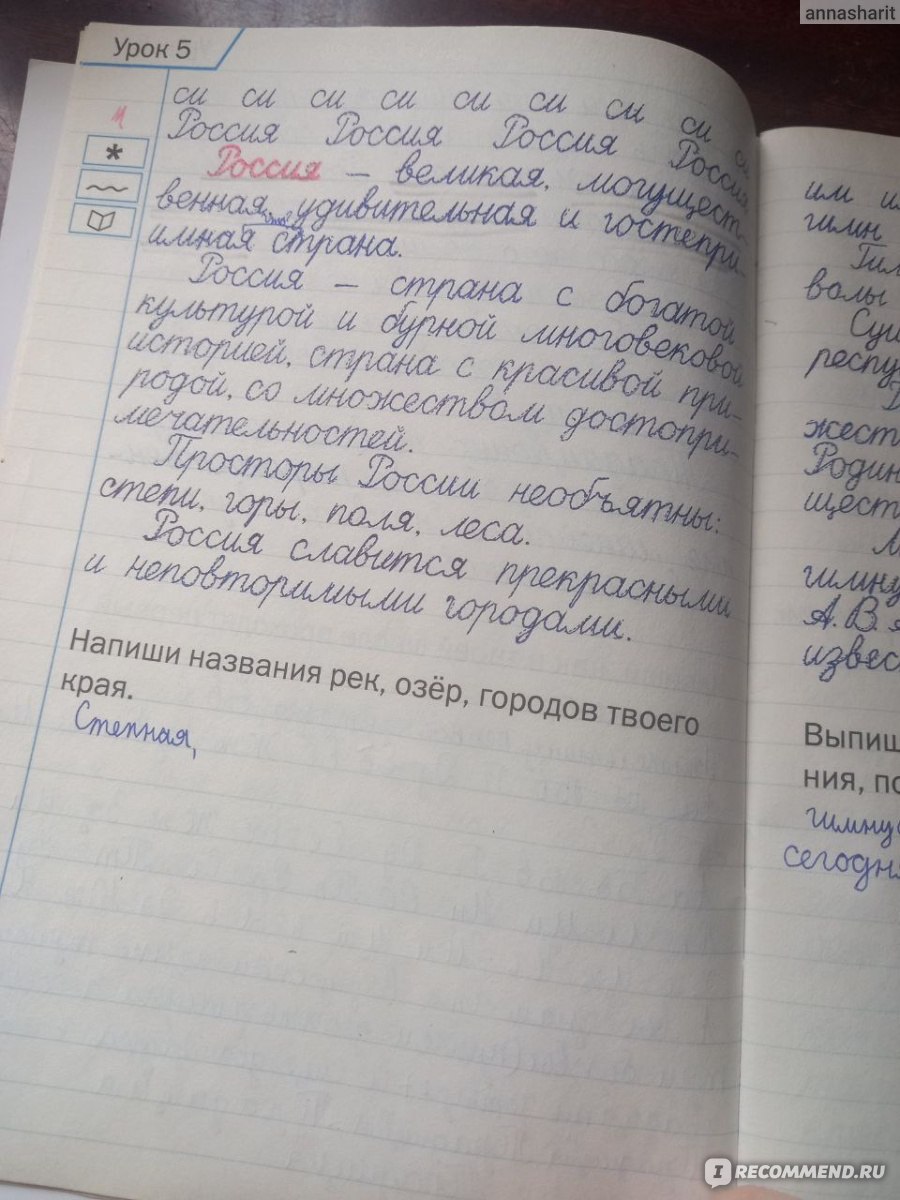 annasharit
Урок 5
си си си си си си си си си
Россия Россия Россия Россия
Россия – великая, могущест-
венная, удивительная и гостепри-
имная страна.
Россия – страна с богатой
культурой и бурной многовековой
историей, страна с красивой при-
родой, со множеством достопри-
мечательностей.
Просторы России необъятны:
степи, горы, поля, леса.
Россия славится прекрасными
и неповторимыми городами.
Напиши названия рек, озёр, городов твоего
края.
Степная,
им
гимн
волы
респу
жест
Родин
щест
гимну
А.В.
извес
Выпиш
ния, по
гимну
сегодня
IRECOMMEND.RU